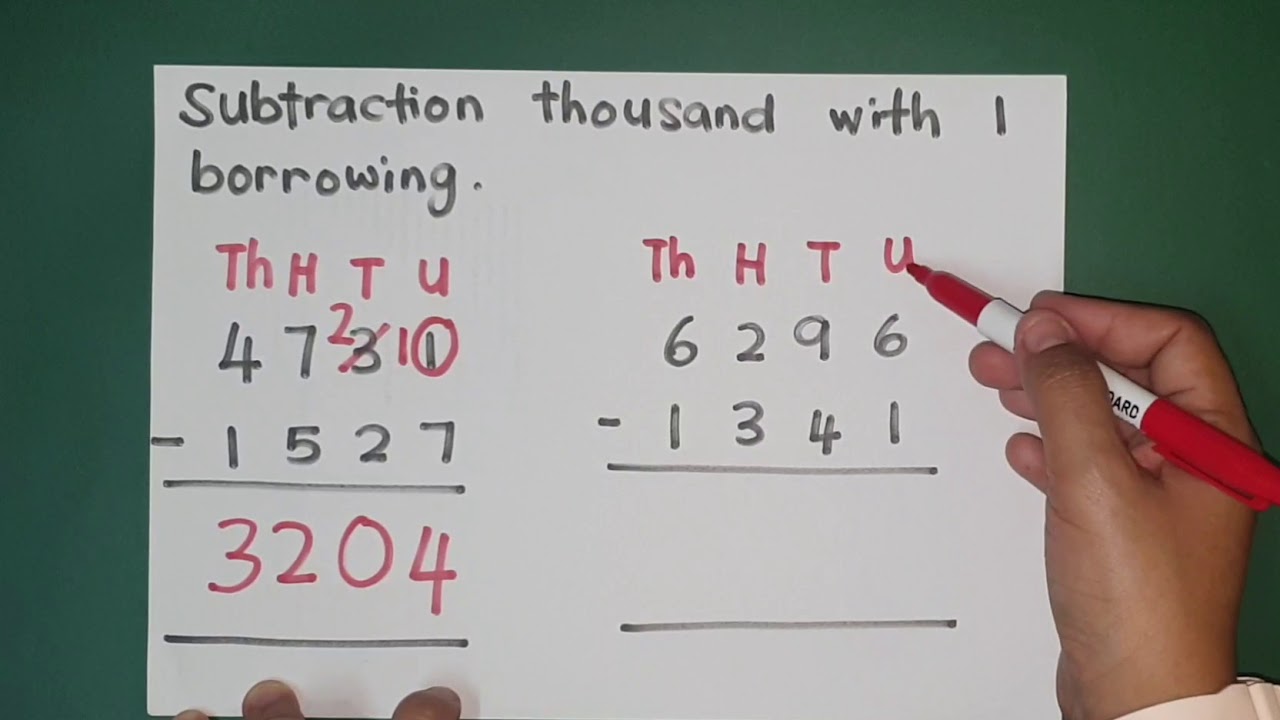 Subtraction thousand with 1
borrowing.
Th H T U
2 10
4 7 3 1
- 1 5 2 7
3 2 0 4
Th H T U
6 2 9 6
- 1 3 4 1